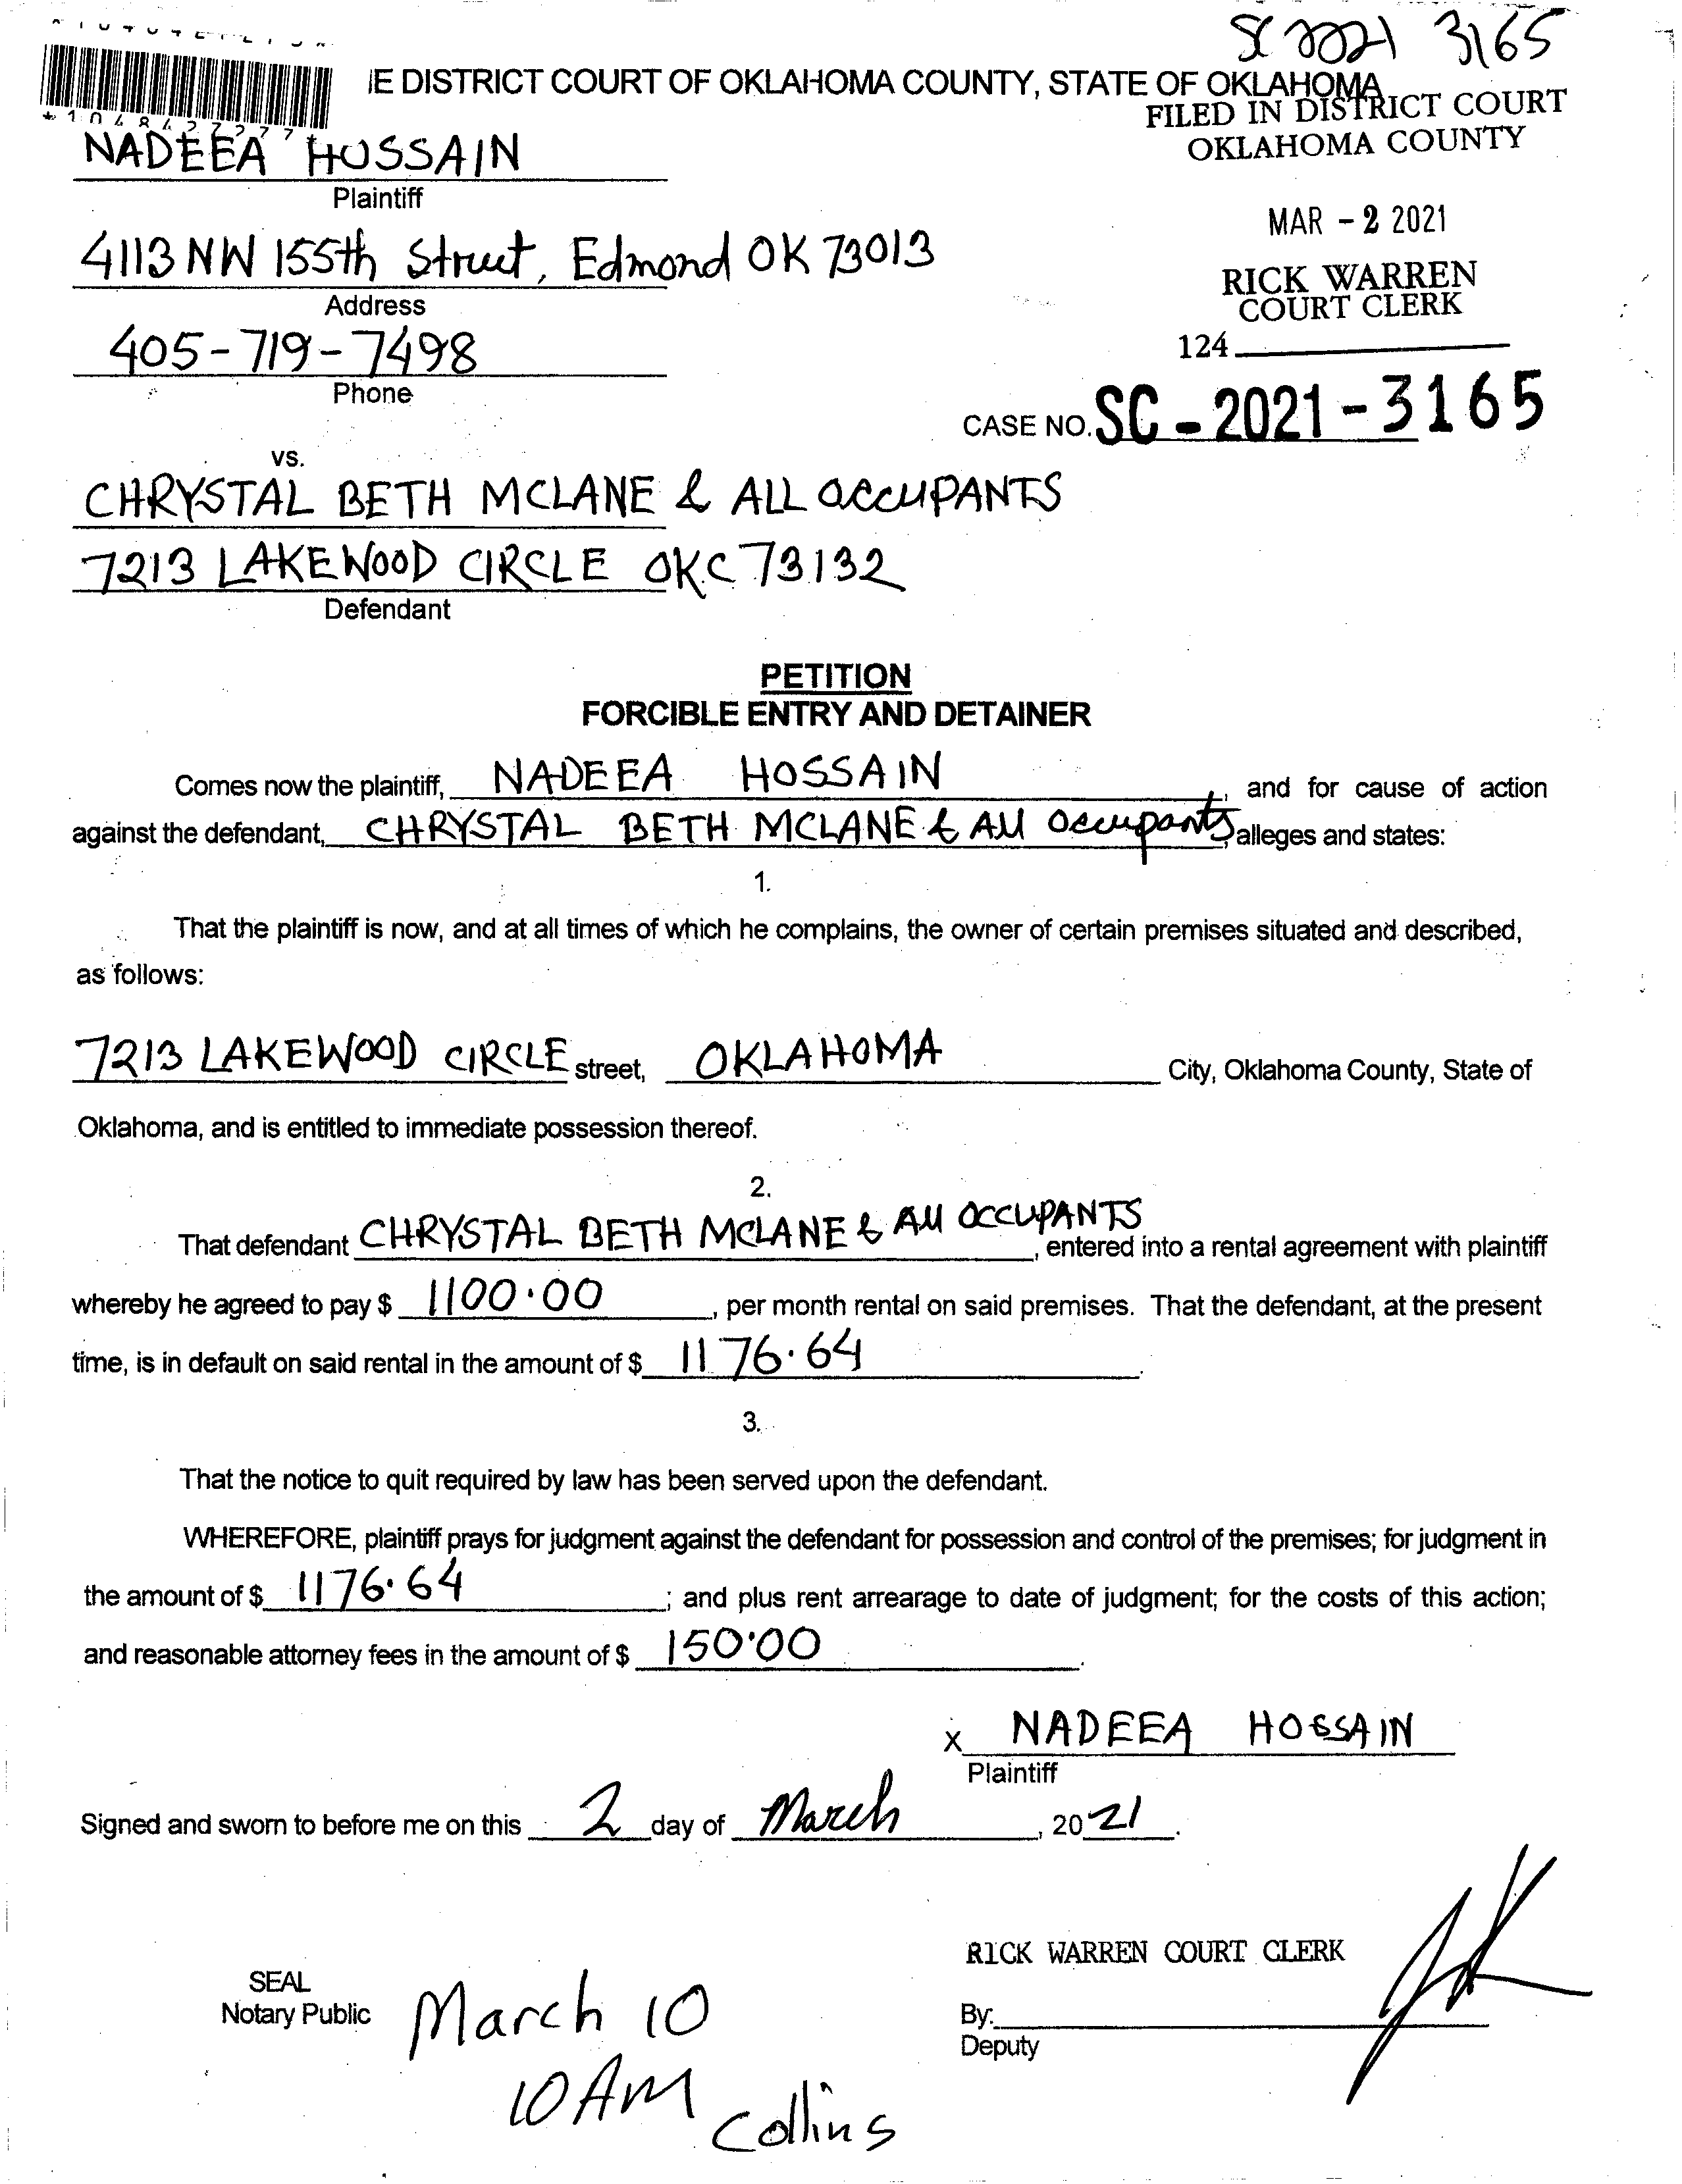 SC 2021 3165
IE DISTRICT COURT OF OKLAHOMA COUNTY, STATE OF OKLAHOMA
FILED IN DISTRICT COURT
OKLAHOMA COUNTY
NADEEA HOSSAIN
Plaintiff
MAR - 2 2021
4113 NW 155th Street, Edmond OK 73013
Address
RICK WARREN
COURT CLERK
405-719-7498
124
Phone
CASE NO. SC - 2021 - 3165
vs.
CHRYSTAL BETH MCLANE & ALL OCCUPANTS
7213 LAKEWOOD CIRCLE OKC 73132
Defendant
PETITION
FORCIBLE ENTRY AND DETAINER
Comes now the plaintiff, NADEEA HOSSAIN, and for cause of action
against the defendant, CHRYSTAL BETH MCLANE & All Occupants, alleges and states:
1.
That the plaintiff is now, and at all times of which he complains, the owner of certain premises situated and described,
as follows:
7213 LAKEWOOD CIRCLE street, OKLAHOMA City, Oklahoma County, State of
Oklahoma, and is entitled to immediate possession thereof.
2.
That defendant CHRYSTAL BETH MCLANE & All OCCUPANTS, entered into a rental agreement with plaintiff
whereby he agreed to pay $ 1100.00, per month rental on said premises. That the defendant, at the present
time, is in default on said rental in the amount of $ 1176.64.
3.
That the notice to quit required by law has been served upon the defendant.
WHEREFORE, plaintiff prays for judgment against the defendant for possession and control of the premises; for judgment in
the amount of $ 1176.64; and plus rent arrearage to date of judgment; for the costs of this action;
and reasonable attorney fees in the amount of $ 150.00.
X NADEEA HOSSAIN
Plaintiff
Signed and sworn to before me on this 2 day of March, 2021.
RICK WARREN COURT CLERK
SEAL
Notary Public
March 10
By:
Deputy
10 AM
Collins